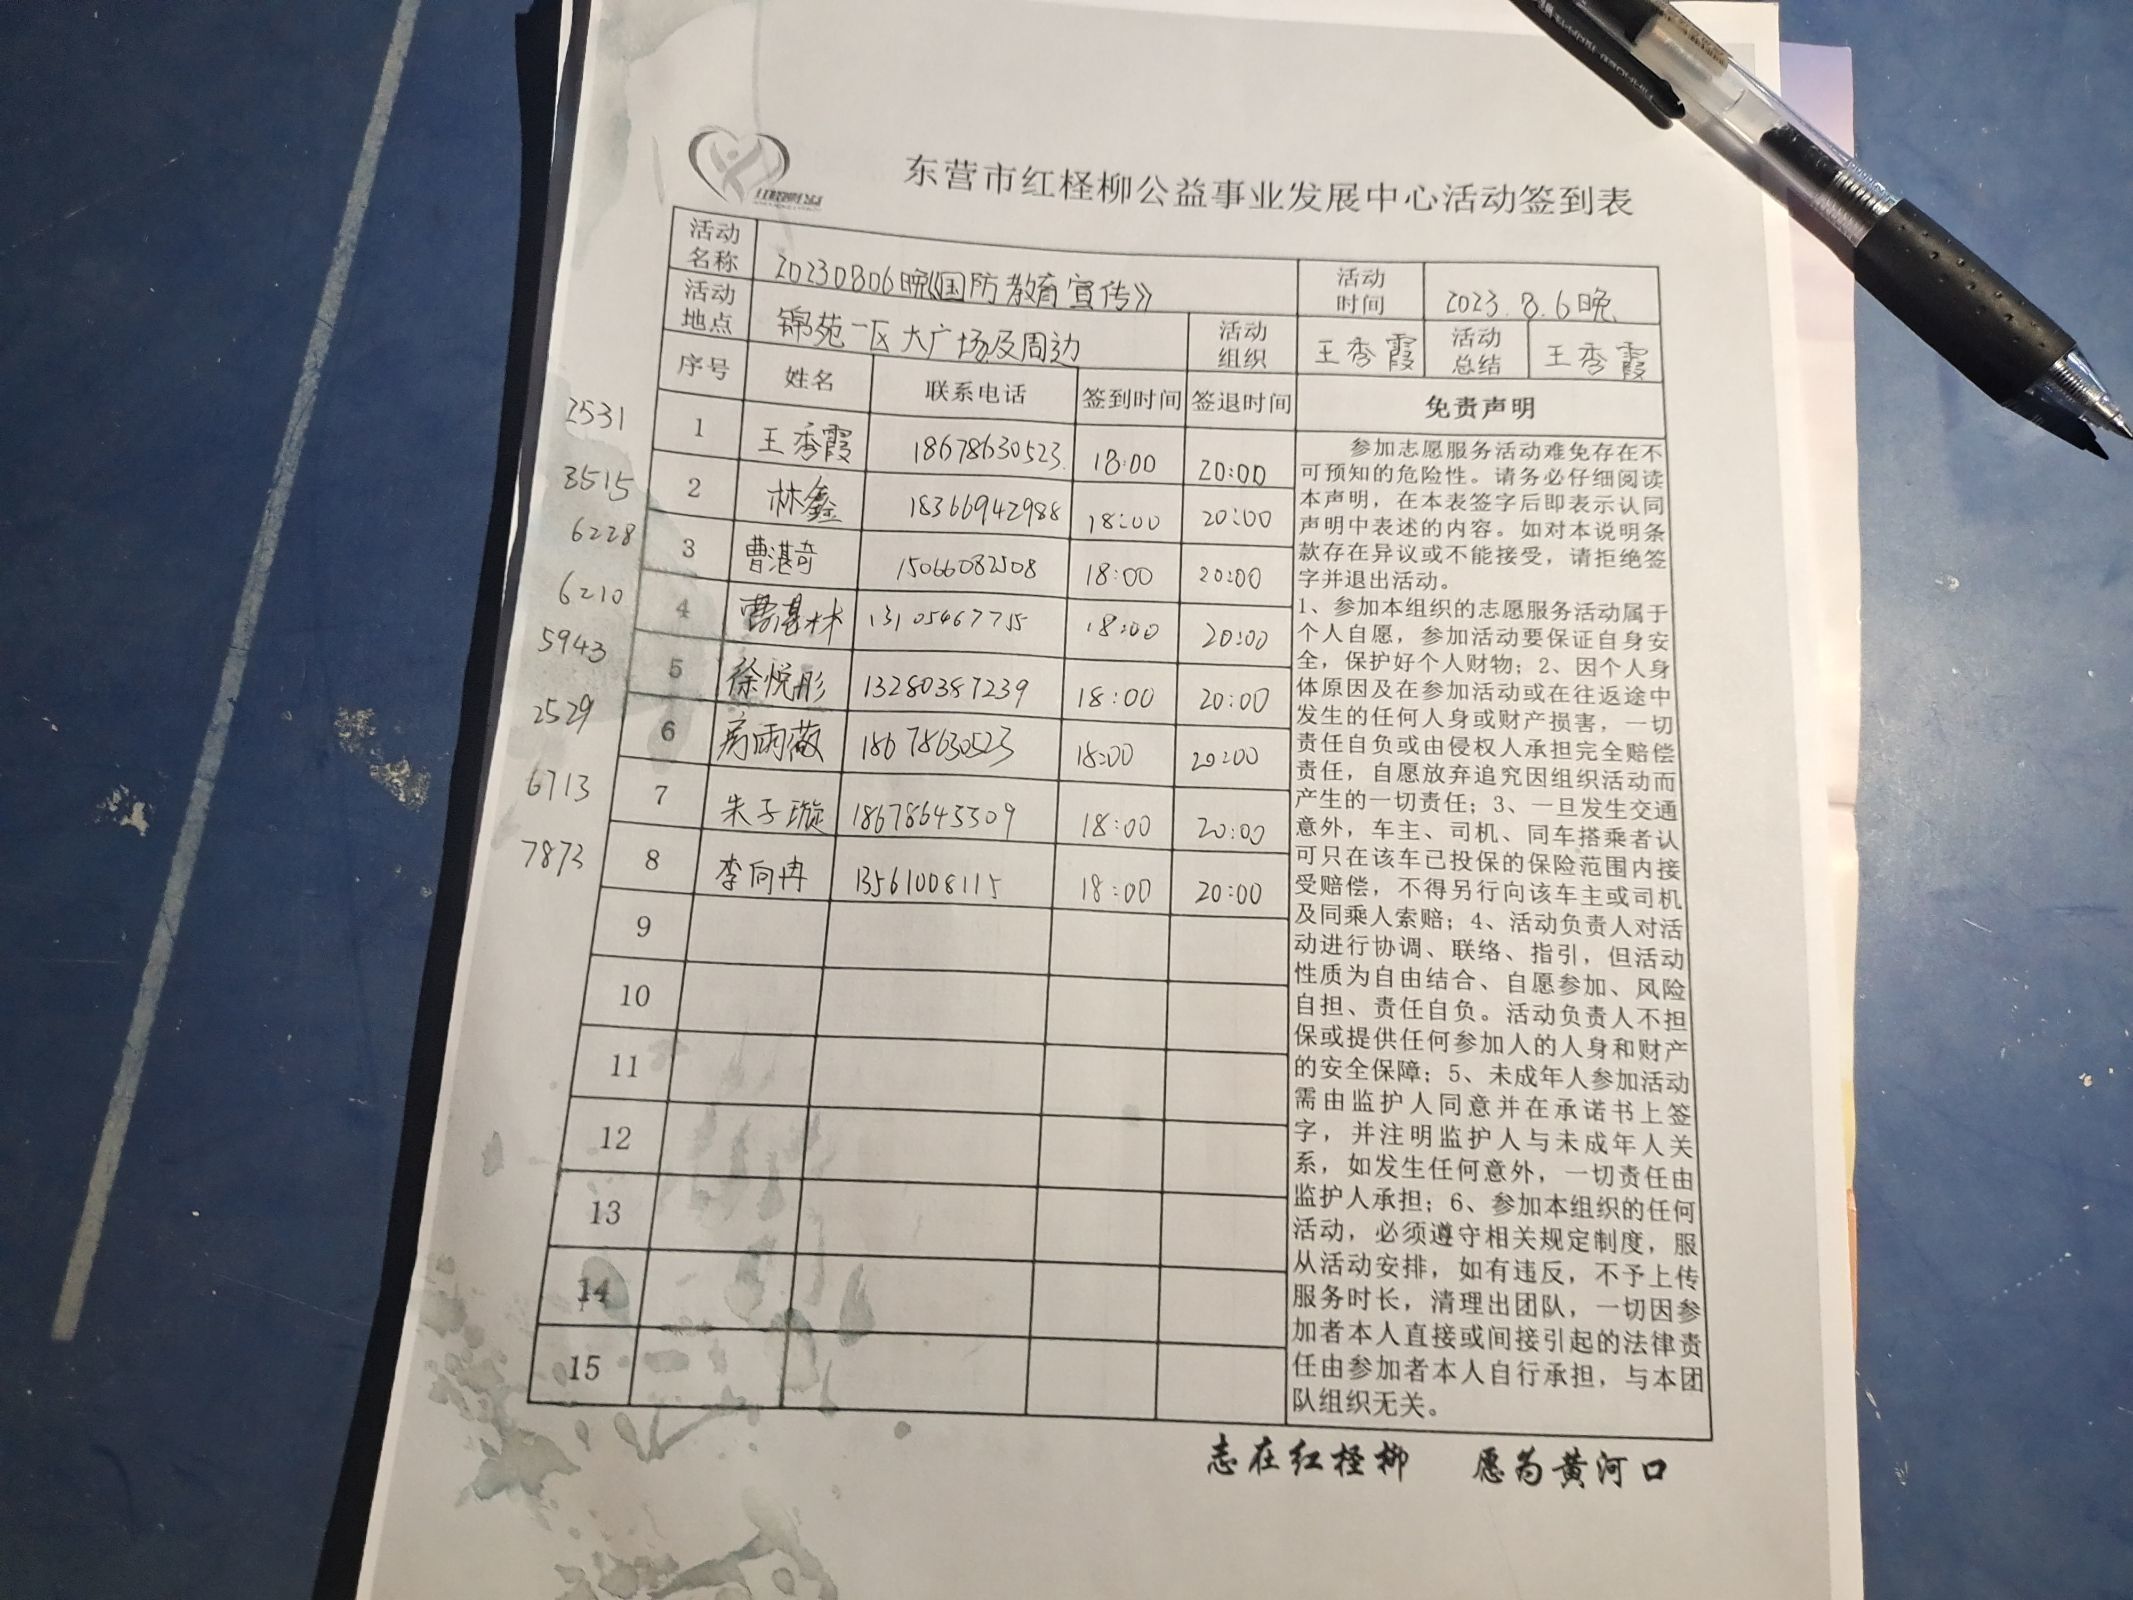 东营市红柽柳公益事业发展中心活动签到表
活动名称 20230806晚《国防教育宣传》 活动时间 2023.8.6晚
活动地点 锦苑一区大广场及周边 活动组织 王秀霞 活动总结 王秀霞
序号 姓名 联系电话 签到时间 签退时间 免责声明
2531 1 王秀霞 18678630523 18:00 20:00
8515 2 林鑫 18366942988 18:00 20:00
6228 3 曹湛奇 15066082508 18:00 20:00
6210 4 曹湛林 13105467715 18:00 20:00
5943 5 徐悦彤 13280387239 18:00 20:00
2529 6 房雨薇 18678630523 18:00 20:00
6713 7 朱子璇 18678643309 18:00 20:00
7873 8 李向冉 13561008115 18:00 20:00
9
10
11
12
13
14
15
参加志愿服务活动难免存在不
可预知的危险性。请务必仔细阅读
本声明，在本表签字后即表示认同
声明中表述的内容。如对本说明条
款存在异议或不能接受，请拒绝签
字并退出活动。
1、参加本组织的志愿服务活动属于
个人自愿，参加活动要保证自身安
全，保护好个人财物；2、因个人身
体原因及在参加活动或在往返途中
发生的任何人身或财产损害，一切
责任自负或由侵权人承担完全赔偿
责任，自愿放弃追究因组织活动而
产生的一切责任；3、一旦发生交通
意外，车主、司机、同车搭乘者认
可只在该车已投保的保险范围内接
受赔偿，不得另行向该车主或司机
及同乘人索赔；4、活动负责人对活
动进行协调、联络、指引，但活动
性质为自由结合、自愿参加、风险
自担、责任自负。活动负责人不担
保或提供任何参加人的人身和财产
的安全保障；5、未成年人参加活动
需由监护人同意并在承诺书上签
字，并注明监护人与未成年人关
系，如发生任何意外，一切责任由
监护人承担；6、参加本组织的任何
活动，必须遵守相关规定制度，服
从活动安排，如有违反，不予上传
服务时长，清理出团队，一切因参
加者本人直接或间接引起的法律责
任由参加者本人自行承担，与本团
队组织无关。
志在红柽柳 愿为黄河口